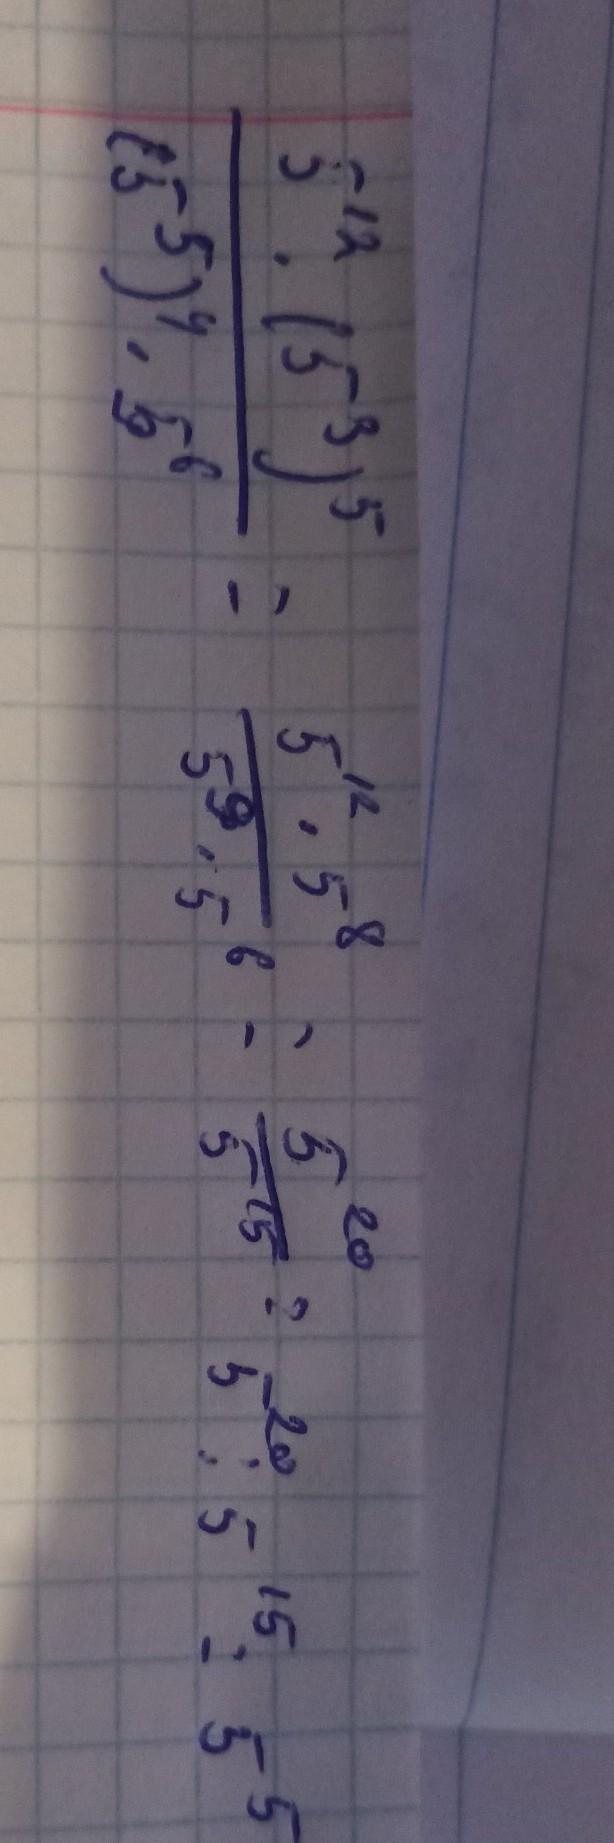 \frac{5^{12} \cdot (5^3)^5}{(5^5)^4 \cdot 5^6} = \frac{5^{12} \cdot 5^8}{5^9 \cdot 5^6} = \frac{5^{20}}{5^{15}} = 5^{20} : 5^{15} = 5^5